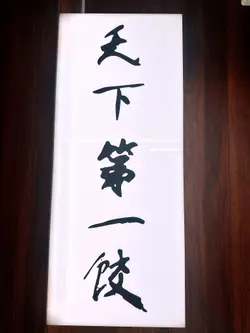 天下第一饺